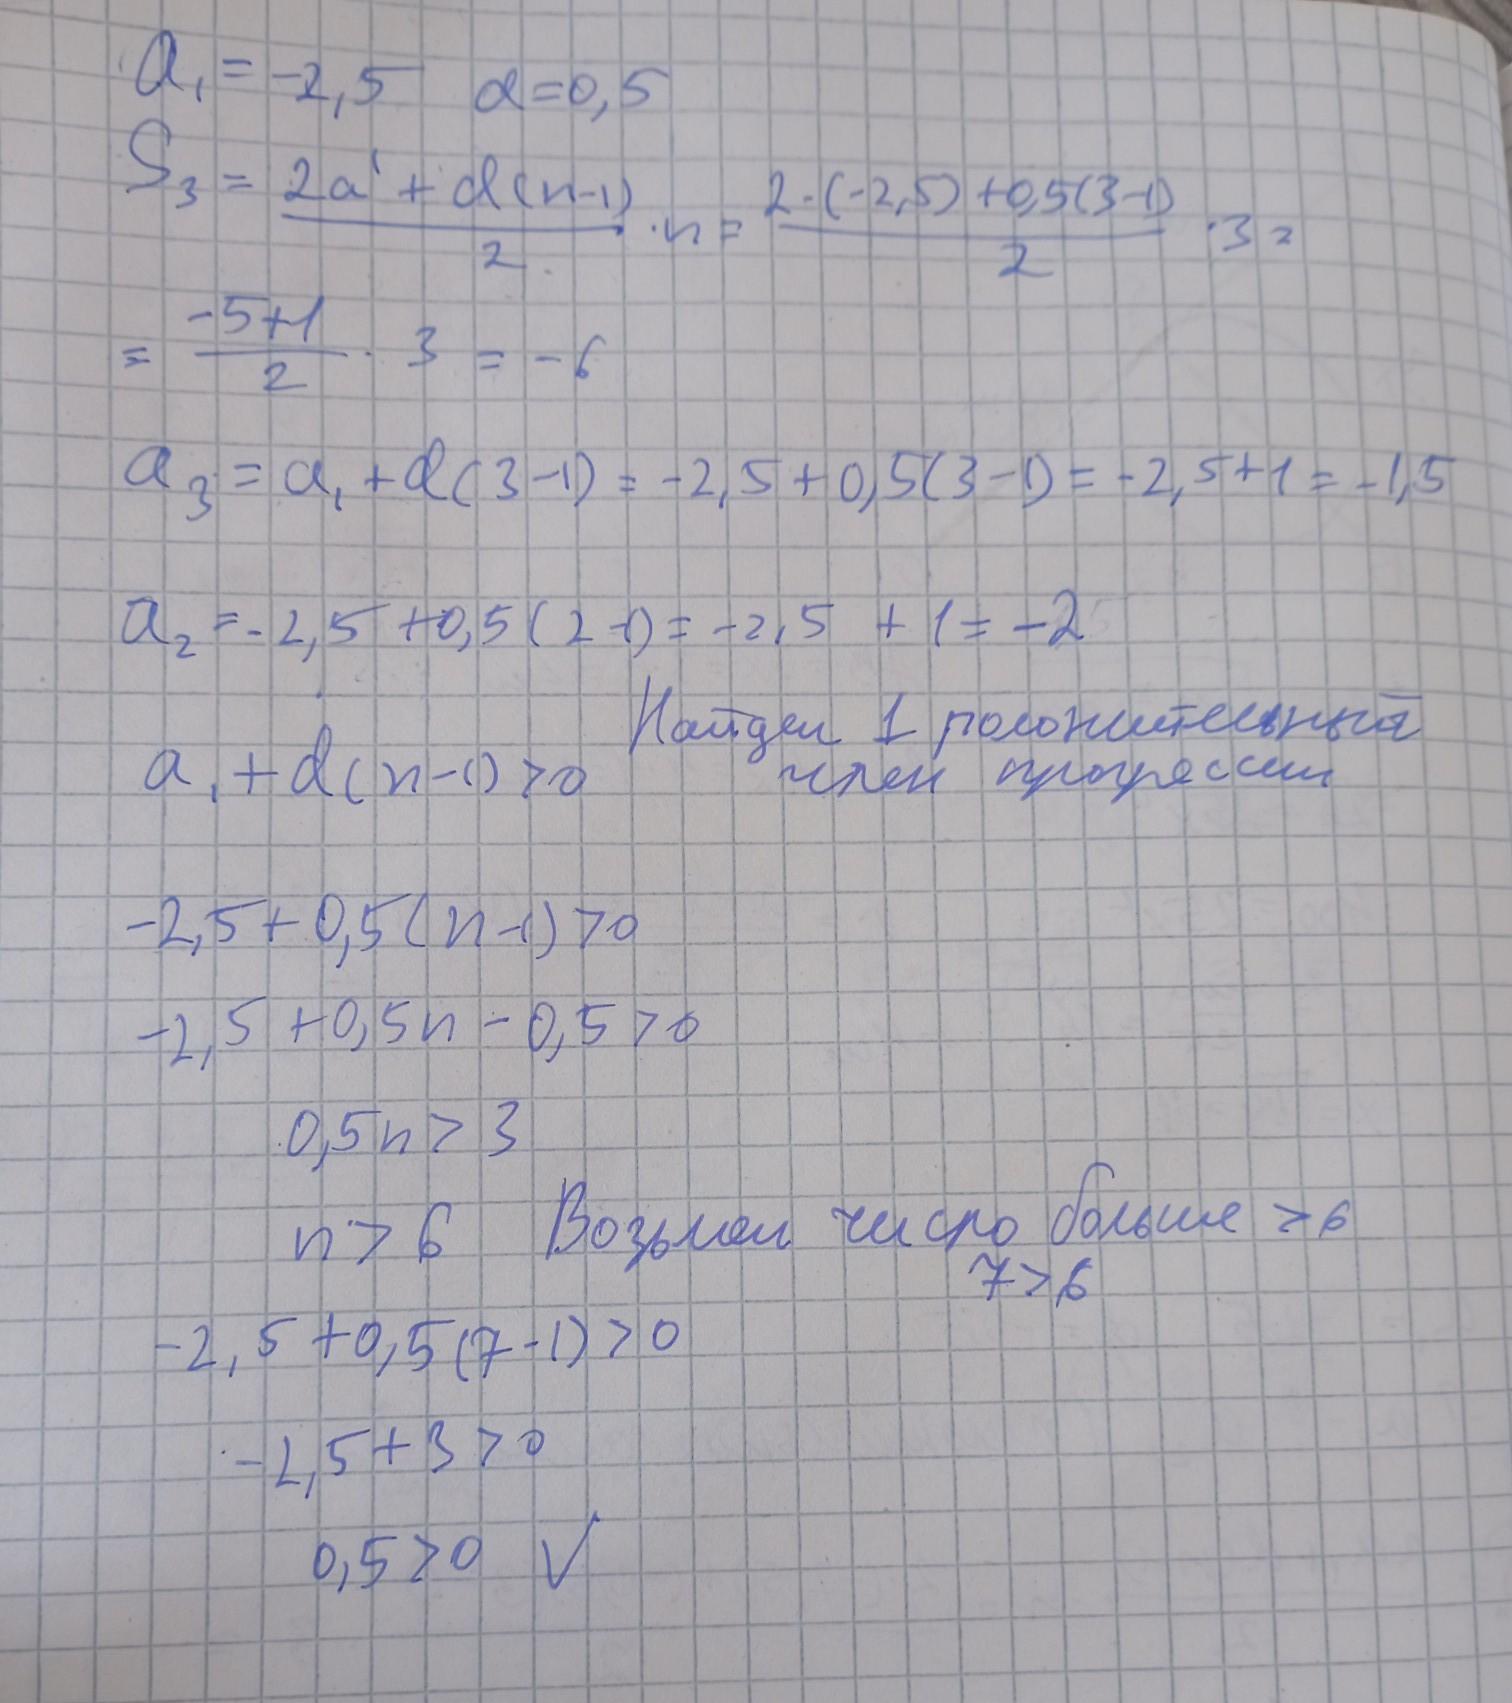 a₁ = -2,5 d=0,5
S₃ = (2a¹ + d(n-1))/2 · n = (2·(-2,5) + 0,5(3-1))/2 · 3 =
= (-5+1)/2 · 3 = -6
a₃ = a₁ + d(3-1) = -2,5 + 0,5(3-1) = -2,5+1 = -1,5
a₂ = -2,5 + 0,5(2-1) = -2,5 + 1 = -2
Найдем 1 положительный
a₁ + d(n-1) > 0 член прогрессии
-2,5 + 0,5(n-1) > 0
-2,5 + 0,5n - 0,5 > 0
0,5n > 3
n > 6 Возьмем число больше > 6
7 > 6
-2,5 + 0,5(7-1) > 0
-2,5 + 3 > 0
0,5 > 0 √